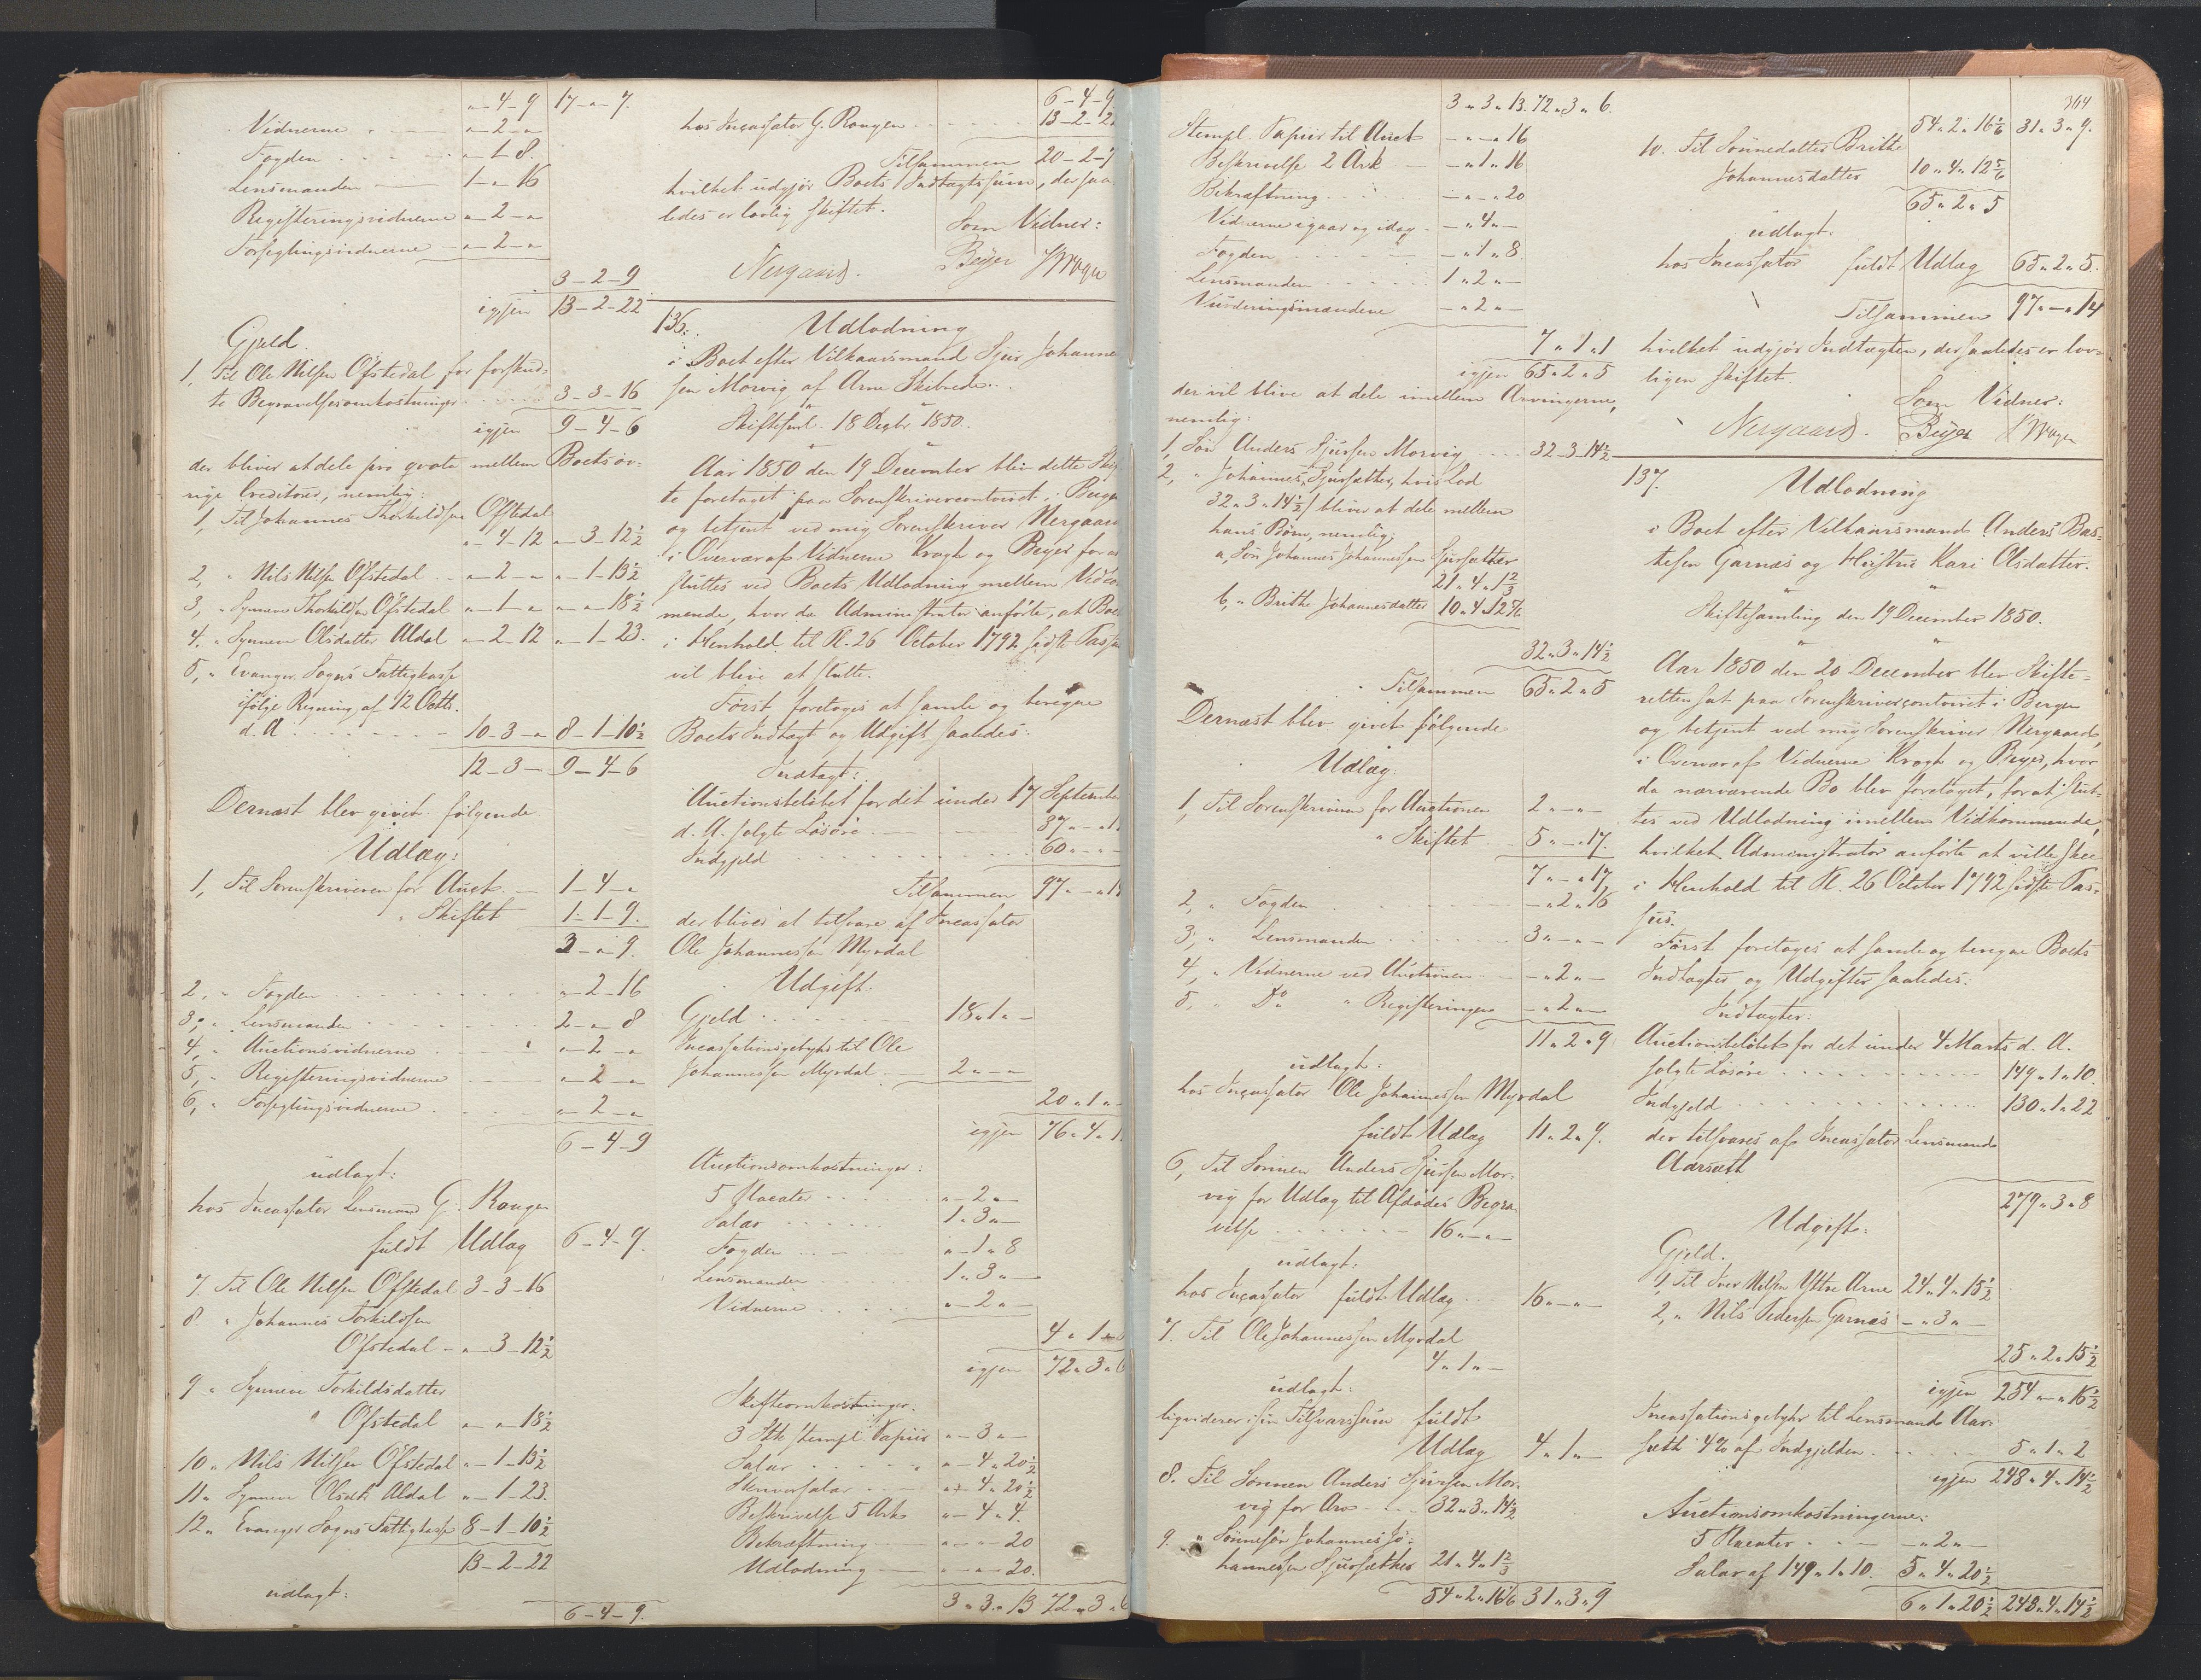 „ 4 – 9 17 – „ – 7.
Vidnerne „ – 2 – „
Fogden „ – 1 – 8.
Lensmanden 1 – „ 16
Registeringsvidnerne „ – 2 – „
Forseglingsvidnerne „ – 2 – „
3 – 2 – 9
igjen 13 – 2 – 22
Gjeld.
1, Til Ole Nilsen Øfstedal for forskud-
te Begravelsesomkostninger 3 – 3 – 16
igjen 9 – 4 – 6
der bliver at dele pro qvota mellem Boets øv-
rige Creditorer, nemlig:
1, Til Johannes Thorkildsen Øfstedal
„ – 4 – 12 „ – 3 – 12½
2, „ Nils Nilsen Øfstedal „ – 2 – „ „ – 1 – 13½
3, „ Synneve Thorkildsd Øfstedal „ – 1 – „ „ – „ – 18½
4. „ Synneve Olsdatter Aldal „ – 2 – 12 „ – 1 – 23.
5, „ Evanger Sogns Fattigkasse
ifølge Regning af 12 Octb.
d. A 10 – 3 – „ 8 – 1 – 10½
12 – 3 – 9 – 4 – 6
Dernæst blev givet følgende
Udlæg:
1, Til Sorenskriveren for Auct. 1 – 4 – „
„ Skiftet 1 – 1 – 9.
3 – „ 9.
2, „ Fogden „ – 2 – 16
3, „ Lensmanden 2 – „ 8
4, „ Auctionsvidnerne „ – 2 – „
5, „ Registeringsvidnerne „ – 2 – „
6, „ Forseglingsvidnerne „ – 2 – „
6 – 4 – 9
udlagt:
hos Incassator Lensmand G. Rongen
fuldt Udlæg 6 – 4 – 9.
7. Til Ole Nilsen Øfstedal 3 – 3 – 16
8. „ Johannes Torkildsen
Øfstedal „ – 3 – 12½
9 „ Synneve Torkildsdatter
Øfstedal „ „ – 18½
10 „ Nils Nilsen Øfstedal „ – 1 – 13½
11 „ Synneve Olsdtr Aldal „ – 1 – 23.
12 „ Evanger Sogns Fattigkasse 8 – 1 – 10½
13 – 2 – 22
udlagt:
6 – 4 – 9.
6 – 4 – 9
hos Incassator G. Rongen 13 – 2 – 2
Tilsammen 20 – 2 – 7
hvilket udgjør Boets Indtægtssum, der saa
ledes er lovlig skiftet.
Som Vidner:
Nergaard. Beyer Kragh
136. Udlodning
i Boet efter Vilkaarsmand Sjur Johanne
sen Morvig af Arne Skibrede.
Skiftesml. 18 Decbr 1850.
Aar 1850 den 19 December blev dette Skif
te foretaget paa Sorenskrivercontoiret i Berge
og betjent ved mig Sorenskriver Nergaar
i Overvær af Vidnerne Kragh og Beyer for a
sluttes ved Boets Udlodning mellem Vedkom
mende, hvor da Administrator anførte, at Boe
i Henhold til Pl. 26 October 1792 sidste Passu
vil blive at slutte.
Først foretoges at samle og beregne
Boets Indtægt og Udgift saaledes:
Indtægt:
Auctionsbeløbet for det under 17 September
d. A. solgte Løsøre 37 „ – „ 1
Indgjeld 60 „ – „
Tilsammen 97 „ – „ 1
der bliver at tilsvare af Incassator
Ole Johannessen Myrdal
Udgift:
Gjeld 18 „ 1 „ –
Incassationsgebyhr til Ole
Johannessen Myrdal 2 „ – „
20 „ 1 „
igjen 76 „ 4 „ 1
Auctionsomkostninger:
5 Placater „ – 2 „ –
Salær 1 „ 3 „ –
Fogden „ – 1 „ 8
Lensmanden 1 „ 3 „ –
Vidnerne „ – 2 „ –
4 „ 1 „
igjen 72 „ 3 „ 6
Skifteomkostninger:
3 Stk stempl. Papiir „ – 3 „ –
Salær „ – 4 „ 20½
Skriversalær „ – 4 „ 20½
Beskrivelse 5 Ark „ – 4 „ 4.
Bekræftning „ – „ 20
Udlodning „ – „ 20.
3 „ 3 „ 13 72 „ 3 „ 6
364
3 „ 3 „ 13. 72 „ 3 „ 6.
Stempl. Papiir til Auct – „ – „ 16
Beskrivelse 2 Ark – „ 1 „ 16
Bekræftning – „ – „ 20
Vidnerne igaar og idag – „ 4 „ –
Fogden – „ 1 „ 8
Lensmanden 1 „ 2 „ –
Vurderingsmændene – „ 2 „ –
7 „ 1 „ 1
igjen 65 „ 2 „ 5
der vil blive at dele imellem Arvingerne,
nemlig:
1, Søn Anders Sjursen Morvig 32 – 3 – 14½
2, „ Johannes Sjursætter, hvis Lod
32 „ 3 „ 14½ bliver at dele mellem
hans Børn, nemlig:
a, Søn Johannes Johannessen Sjursætter
21 „ 4 „ 1⅔
b, „ Brithe Johannesdatter 10 „ 4 „ 12⅚
32 „ 3 „ 14½
Tilsammen 65 „ 2 „ 5
Dernæst blev givet følgende
Udlæg.
1, Til Sorenskriveren for Auctionen 2 „ – „ –
„ Skiftet 5 „ – „ 17.
7 „ – „ 17,
2, „ Fogden – „ 2 „ 16
3, „ Lensmanden 3 „ – „ –
4, „ Vidnerne ved Auctionen – „ 2 „ –
5, „ Do „ Registeringen – „ 2 „ –
11 „ 2 „ 9
udlagt:
hos Incassator Ole Johannessen Myrdal
fuldt Udlæg 11 „ 2 „ 9.
6, Til Sønnen Anders Sjursen Mor-
vig for Udlæg til Afdødes Begra-
velse 16 „ – „ –
udlagt:
hos Incassator fuldt Udlæg 16 „ – „ –
7. Til Ole Johannessen Myrdal
4 „ 1 „ –
udlagt:
ligviderer i sin Tilsvarssum fuldt
Udlæg 4 „ 1 „ –
8. Til Sønnen Anders Sjursen Mor-
vig for Arv 32 „ 3 „ 14½
9. „ Sønnesøn Johannes Jo-
hannessen Sjursætter 21 „ 4 „ 1⅔
54 „ 2 „ 16⅙ 31 „ 3 „ 9
54 „ 2 „ 16⅙ 31 „ 3 „ 9.
10. Til Sønnedatter Brithe
Johannesdatter 10 „ 4 „ 12⅚
65 „ 2 „ 5
udlagt:
hos Incassator fuldt Udlæg 65 „ 2 „ 5.
Tilsammen 97 „ – „ 14
hvilket udgjør Indtægten, der saaledes er lov-
ligen skiftet.
Som Vidner:
Nergaard. Beyer Kragh
137. Udlodning
i Boet efter Vilkaarsmand Anders Bas-
tesen Garnæs og Hustrue Kari Olsdatter.
Skiftesamling den 19 December 1850.
Aar 1850 den 20 December blev Skifte-
retten sat paa Sorenskrivercontoiret i Bergen
og betjent ved mig Sorenskriver Nergaard,
i Overvær af Vidnerne Kragh og Beyer, hvor
da nærværende Bo blev foretaget, for at slut-
tes ved Udlodning imellem Vidkommende,
hvilket Administrator anførte at ville skee
i Henhold til Pl. 26 October 1792 sidste Pas-
sus.
Først foretoges at samle og beregne Boets
Indtægter og Udgifter saaledes:
Indtægter:
Auctionsbeløbet for det under 4 Marts d. A.
solgte Løsøre 149 „ 1 „ 10.
Indgjeld 130 „ 1 „ 22
der tilsvares af Incassator Lensmand
Aarsæth
279 „ 3 „ 8
Udgift:
Gjeld.
1, Til Iver Nilsen Ytre Arne 24 „ 4 „ 15½
2, „ Nils Pedersen Garnæs – „ 3 „ –
25 „ 2 „ 15½
igjen 254 „ – „ 16½
Incassationsgebyhr til Lensmand Aar-
sæth 4% af Indgjelden 5 „ 1 „ 2
igjen 248 „ 4 „ 14½
Auctionsomkostningerne:
5 Placater – „ 2 „ –
Salær af 149 „ 1 „ 10. 5 „ 4 „ 20½
6 „ 1 „ 20½ 248 „ 4 „ 14½